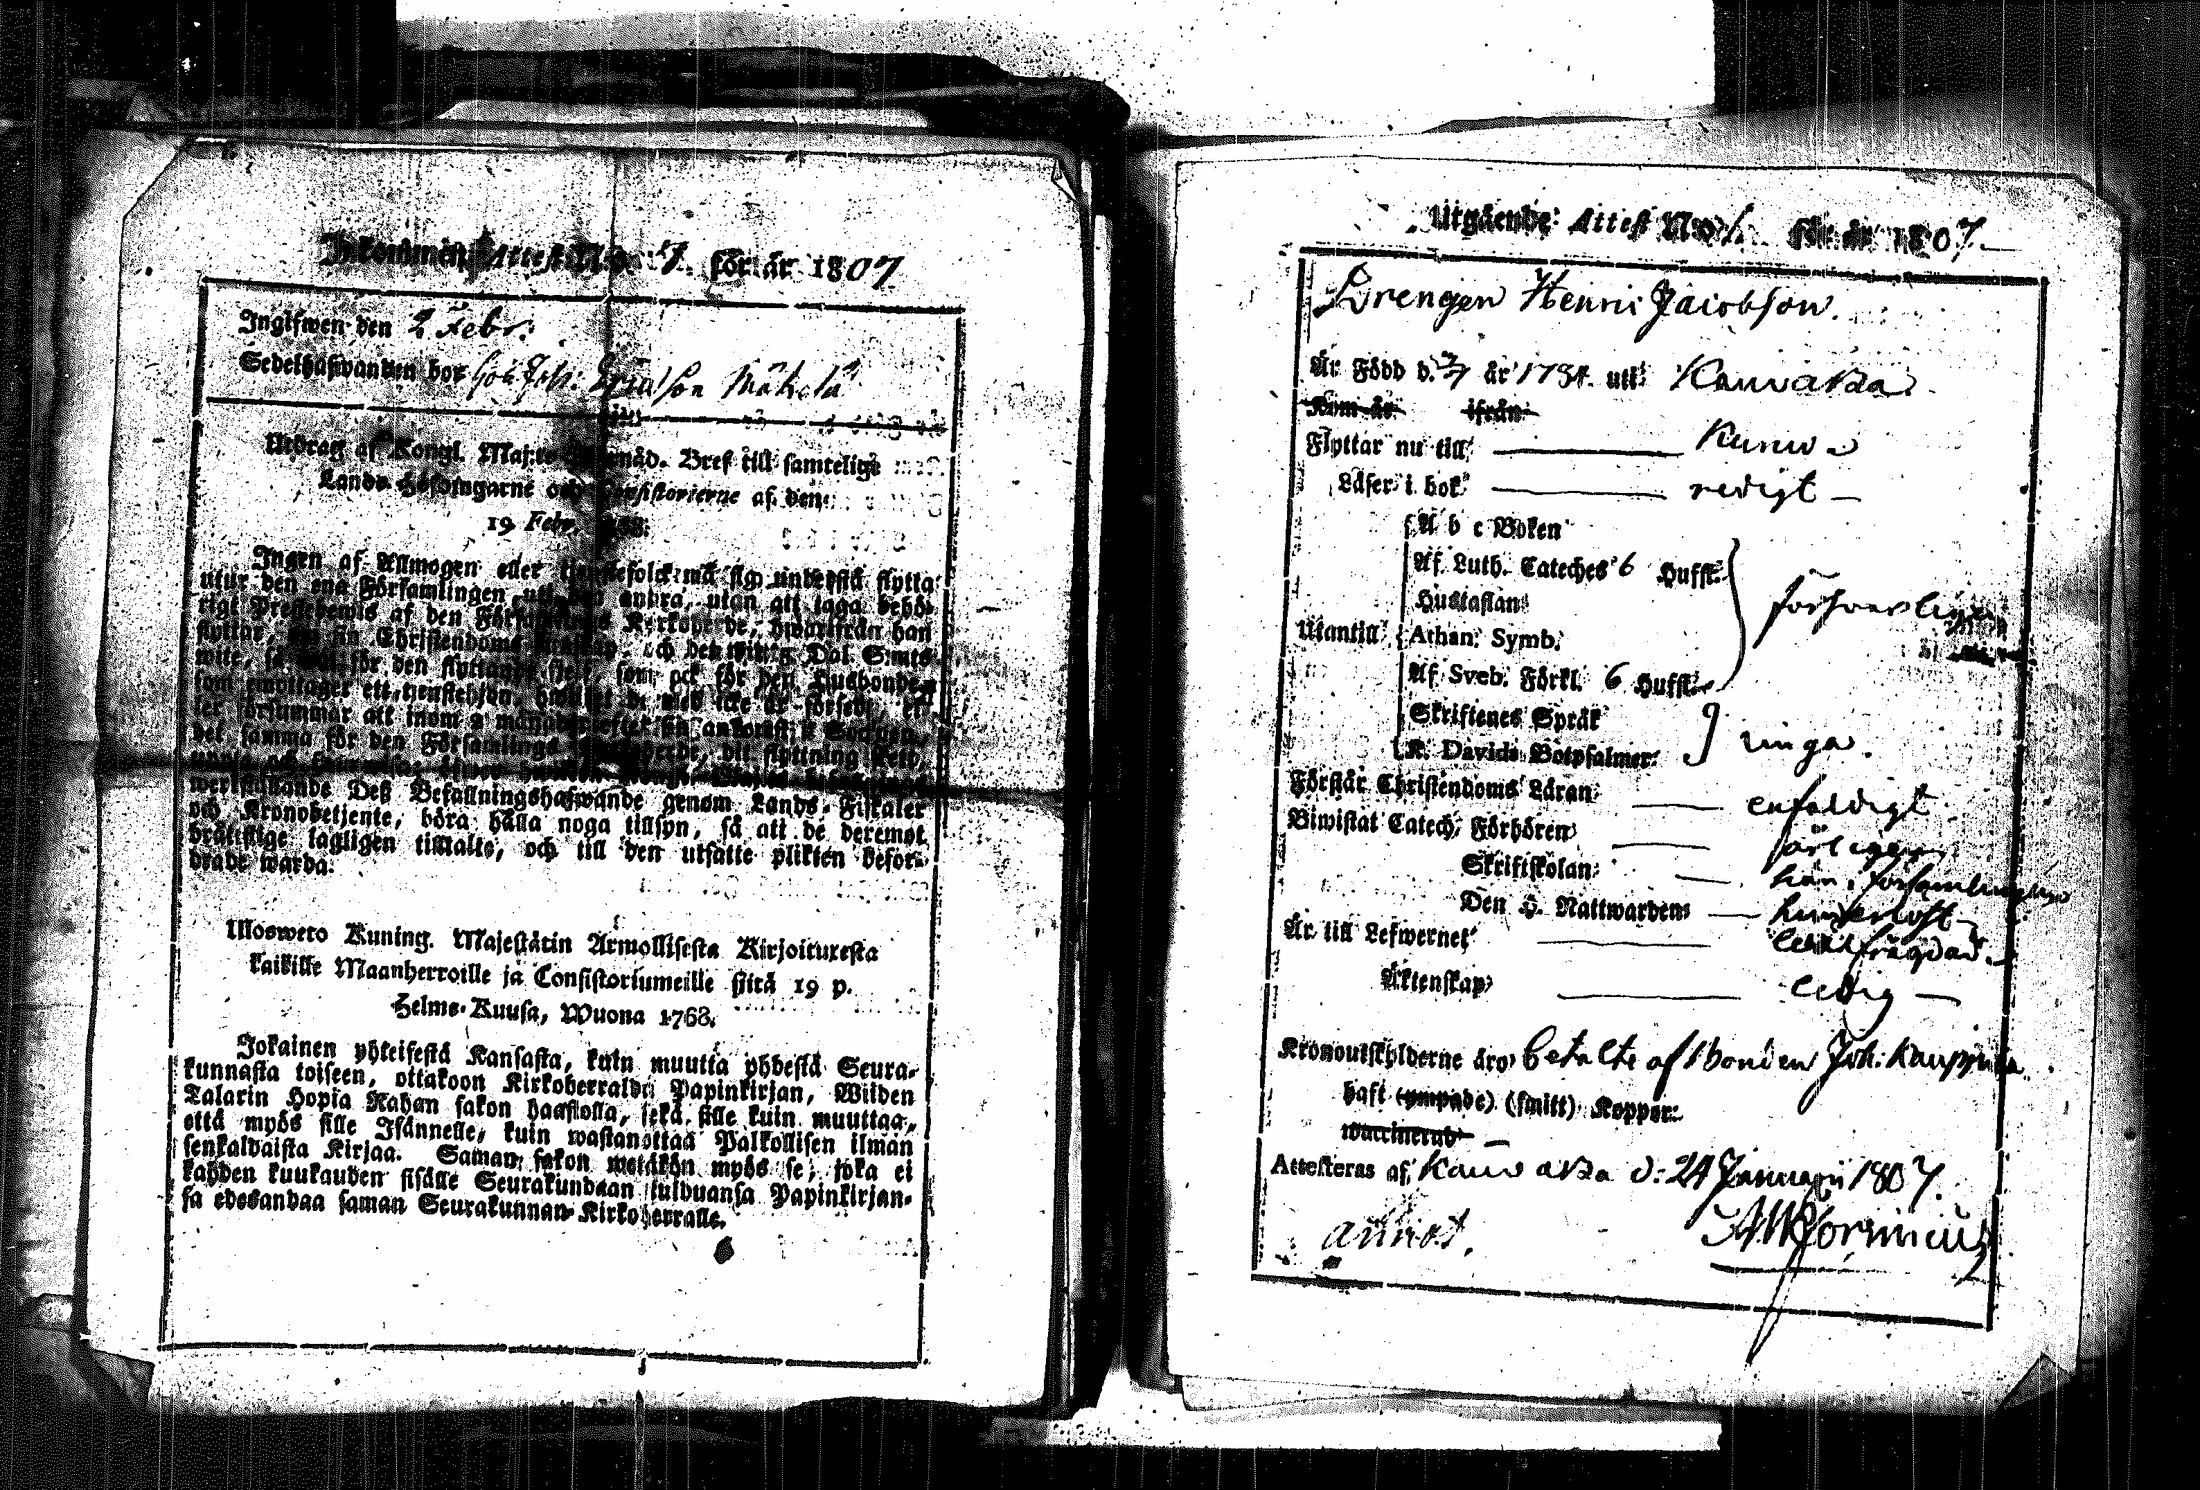 Inkommen Attest No. 7. för år 1807
Ingifwen den 2 Febr.
Sedelhafwanden bor hos Joh: Mäkelä
Utdrag af Kongl. Maj:ts Nåd. Bref till samtelige
Lands-Höfdingarne och Consistorierne af den
19 Febr.
Ingen af Allmogen eller tjenstefolck må sig understå flytta
utur den ena Församlingen uti den andra, utan att taga behö-
rigt Prestebewis af den Församlings Kyrkoherde, hwarifrån han
flyttar, om sin Christendoms kunskap, och det wid 2 Dal. S:mts
wite, så wäl för den flyttande sjelf, som ock för den Husbonde,
som emottager ett tjenstehjon, hwilket der med icke är försedt, el-
ler försummar att inom 2 månader efter sin ankomst i Socknen,
det samma för den Församlings Kyrkoherde, dit flyttning skett,
werkställande Dess Befallningshafwande genom Lands-Fiskaler
och Kronobetjente, böra hålla noga tillsyn, så att de deremot
brättslige lagligen tilltalte, och till den utsatte plikten befor-
drade warda.
Ulosweto Kuning. Majestätin Armollisesta Kirjoituxesta
kaikille Maanherroille ja Consistoriumeille siitä 19 p.
Helme-Kuusa, Wuona 1768.
Jokainen yhteisestä Kansasta, kuin muutta yhdestä Seura-
kunnasta toiseen, ottakoon Kirkoherralda Papinkirjan, Wiiden
Talarin Hopia Rahan sakon haastolla, sekä sille kuin muuttaa,
että myös sille Isännelle, kuin wastanottaa Palkollisen ilman
senkaldaista Kirjaa. Saman sakon wetäkön myös se, joka ei
kahden kuukauden sisälle Seurakundaan tulduansa Papinkirjan-
sa edesandaa saman Seurakunnan Kirkoherralle.
Utgående Attest No 1. för år 1807.
Drengen Henric Jacobson.
Är Född d. 2/7 år 1784. uti Kauvatza
Kom år ifrån
Flyttar nu till Kumo
Läser i bok redigt
A b c Boken
Af Luth. Cateches 6 Hufst.
Hustaflan
Utantill Athan. Symb. försvarligen
Af Sveb. Förkl. 6 Hufst.
Skriftenes Språk
K. Davids Botpsalmer ringa.
Förstår Christendoms Läran enfaldigt
Biwistat Catech. Förhören årligen
Skriftskolan
Den H. Nattwarden
Är till Lefwernet
Äktenskap ledig
Kronoutskylderne äro betalte af bonden Joh: Kauppila
haft (ympade) (smitt) Koppor.
waccinerad
Attesteras af Kauvatza d: 24 Januarii 1807.
annot.